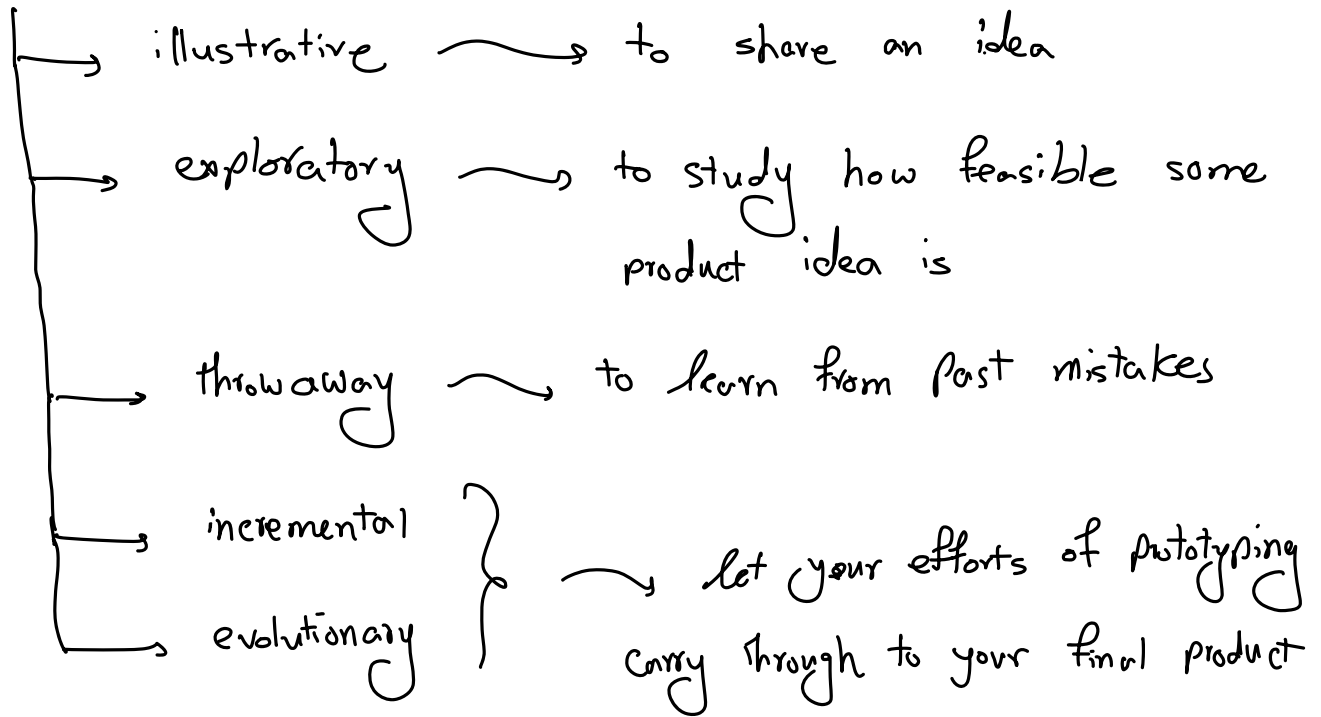 illustrative → to share an idea
exploratory → to study how feasible some
product idea is
throwaway → to learn from past mistakes
incremental
evolutionary } → let your efforts of prototyping
carry through to your final product